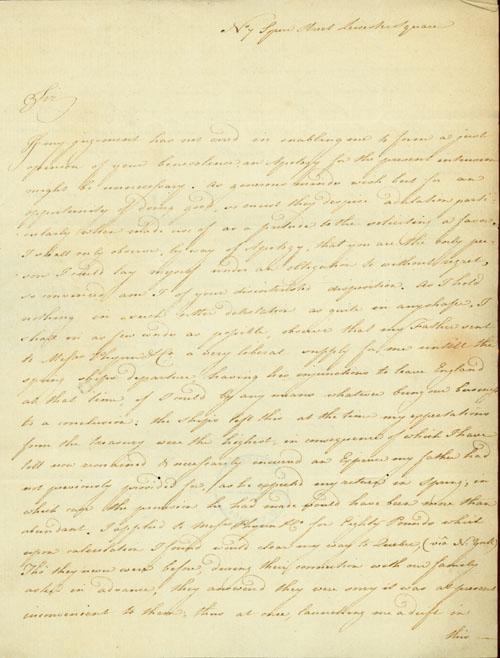 No 7 Spur Street Leicester Square
Sir
If my judgement has not erred in enabling me to form a just
opinion of your benevolence, an Apology for the present intrusion
might be unnecessary. As generous minds wish but for an
oppertunity of doing good, so must they despise adulation parti-
cularly when made use of as a preface to the soliciting a favor.
I shall only observe, by way of Apology, that you are the only per-
son I could lay myself under an obligation to without regret,
so convinced am I of your disinterested disposition. As I hold
nothing in such utter detestation as guile in any shape. I
shall in as few words as possible, observe that my Father sent
to Messrs Phyn & Co. a very liberal supply for me untill the
spring ships departure, having his injunctions to leave England
at that time, if I could by any means whatever bring our business
to a conclusion: the ships left this at the time my expectations
from the treasury were the highest, in consequence of which I have
till now remained & necessarily incurred an Expence my father had
not previously provided for, (as he expected my return in Spring, in
which case the provision he had made would have been more than
abundant. I applied to Messrs Phyn & Co for Eighty Pounds which
upon calculation I found would clear my way to Quebec, (via N. York)
Tho' they never were before, during their connection with our family
asked in advance, they answered they were sorry it was at present
inconvenient to them; thus at once launching me adrift in
this —